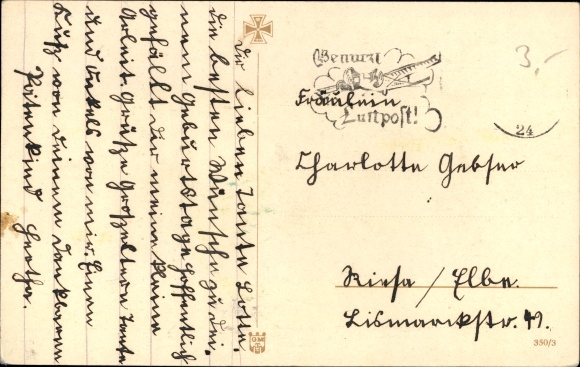 Dir lieben Tante Lotte.
die besten Wünsche zu dei-
nem Geburtstage hoffentlich
gefällt dir meine kleine
Arbeit. Grüße Großeltern Tante
und Onkels von mir. Einen
Kuß von deinem dankbaren
Patenkind Hertha.
Benutzt
Luftpost!
24
3,-
Fräulein
Charlotte Gebser
Riesa / Elbe.
Bismarckstr. 49.
350/3